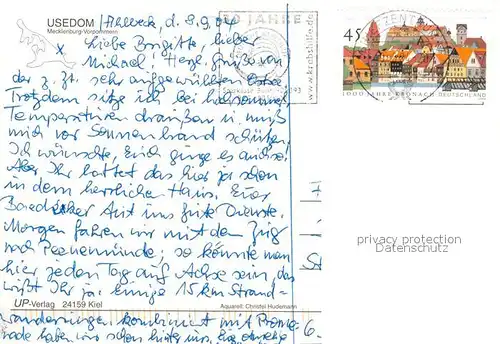 USEDOM
Mecklenburg-Vorpommern
Ahlbeck, d. 8.9.04
Liebe Brigitte, lieber
Michael! Herzl. Grüße von
der z. Zt. sehr aufgewühlten Ostsee
Trotzdem sitze ich bei
Temperaturen draußen u. muß
mich vor Sonnenbrand schützen.
Ich wünschte, Euch ginge es auch so.
Aber Ihr hattet das hier ja schon
in dem herrlichen Haus. Euer
Baedeker tut uns gute Dienste.
Morgen fahren wir mit dem Zug
nach Peenemünde; so könnte man
hier jeden Tag auf Achse sein, das
wißt Ihr ja. Einige 15 km Strand-
UP-Verlag 24159 Kiel
Aquarell: Christel Hudemann
wanderungen, kombiniert mit Prome-
nade haben wir schon hinter uns.
JAHRE
www.krebshilfe.de
ZENTR
45
1000 JAHRE KRONACH DEUTSCHLAND
privacy protection
Datenschutz